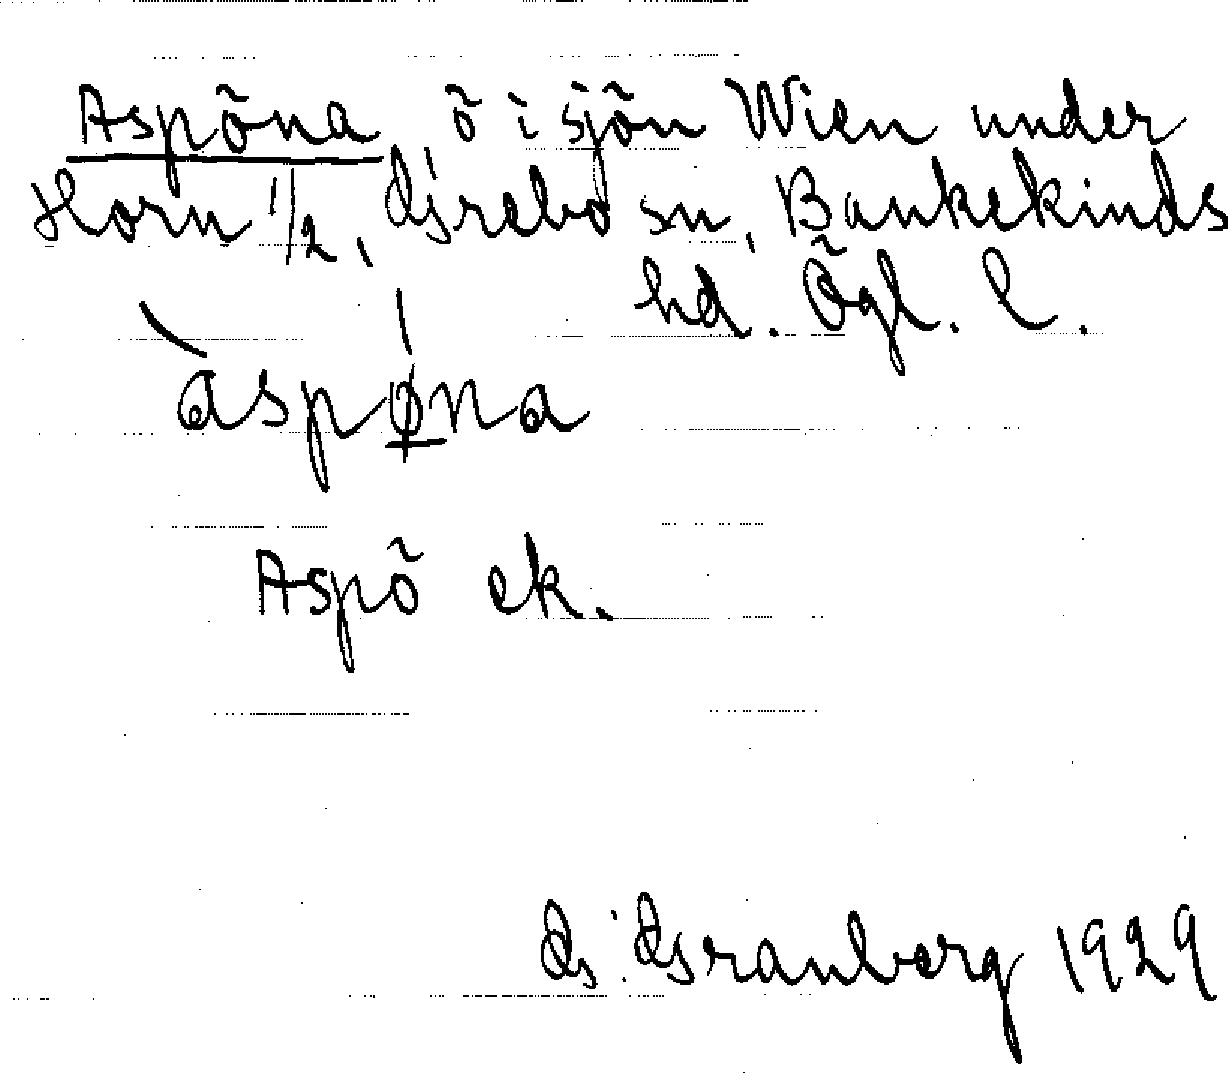 Aspõna, õ i sjõn Wien under
Horn 1/2, Grebo sn, Bankekinds
hd. Õgl. l.
àspø̱na
Aspõ ek.
G. Granberg 1929